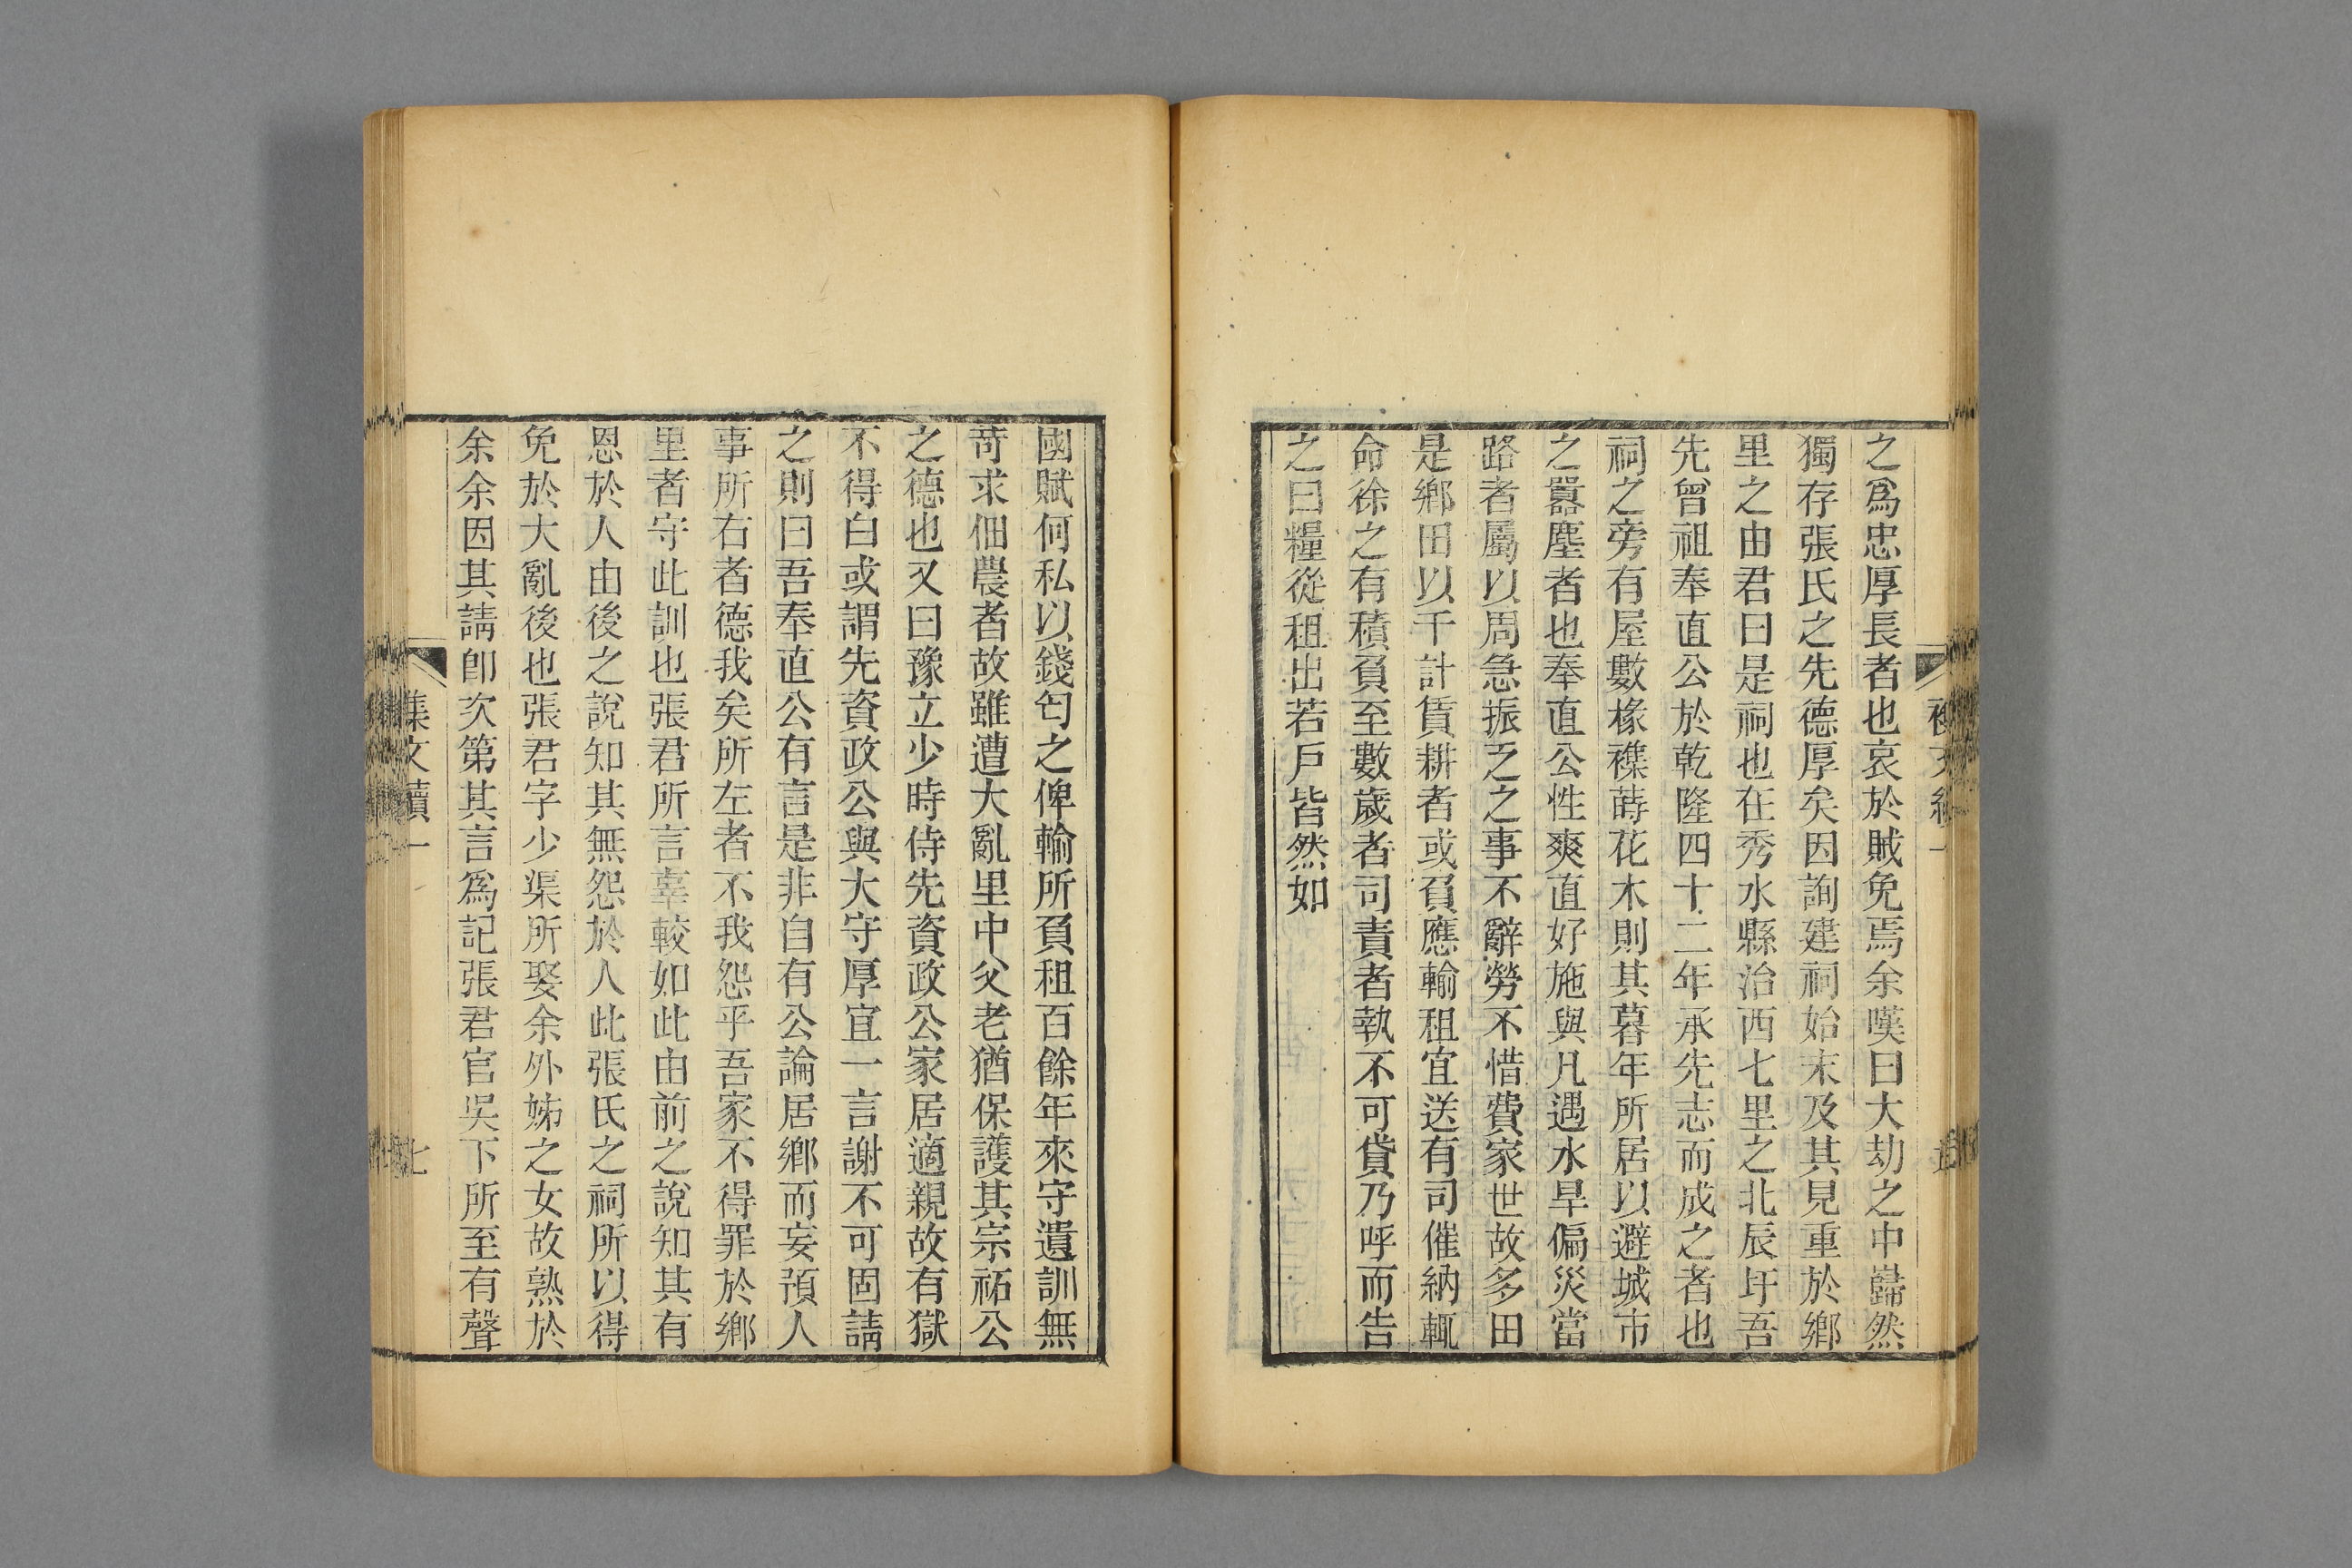 之爲忠厚長者也哀於賊免焉余嘆曰大劫之中巋然
獨存張氏之先德厚矣因詢建祠始末及其見重於鄉
里之由君曰是祠也在秀水縣治西七里之北辰圩吾
先曾祖奉直公於乾隆四十二年承先志而成之者也
祠之旁有屋數椽襍蒔花木則其暮年所居以避城市
之囂塵者也奉直公性爽直好施與凡遇水旱偏災當
路者屬以周急振乏之事不辭勞不惜費家世故多田
是鄉田以千計賃耕者或負應輸租宜送有司催納輒
命徐之有積負至數歲者司責者執不可貸乃呼而告
之曰糧從租出若戶皆然如
國賦何私以錢匄之俾輸所負租百餘年來守遺訓無
苛求佃農者故雖遭大亂里中父老猶保護其宗祏公
之德也又曰豫立少時侍先資政公家居適親故有獄
不得白或謂先資政公與大守厚宜一言謝不可固請
之則曰吾奉直公有言是非自有公論居鄉而妄預人
事所右者德我矣所左者不我怨乎吾家不得罪於鄉
里者守此訓也張君所言辜較如此由前之說知其有
恩於人由後之說知其無怨於人此張氏之祠所以得
免於大亂後也張君字少渠所娶余外姊之女故熟於
余余因其請卽次第其言爲記張君官吳下所至有聲
集文續一
七